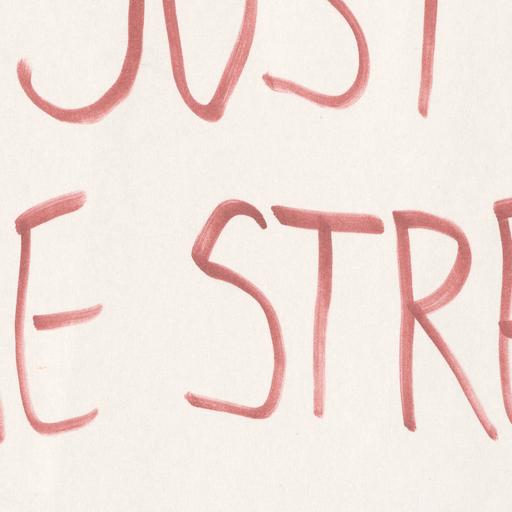 JUST
E STRE